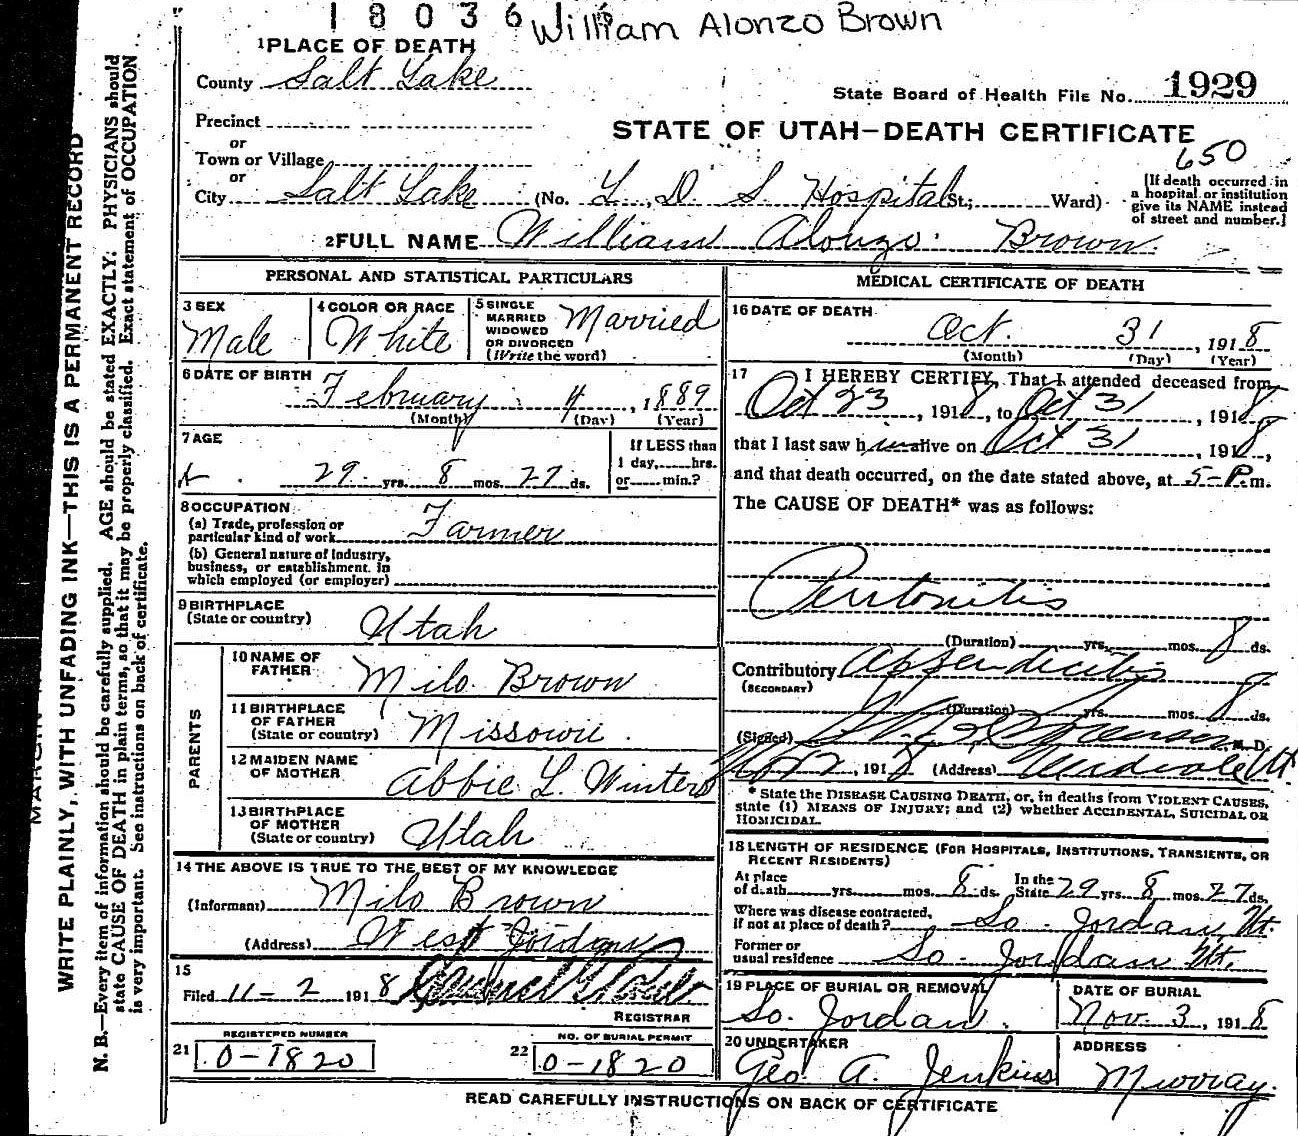 18036
William Alonzo Brown
1 PLACE OF DEATH
County Salt Lake
State Board of Health File No. 1929
Precinct
or
Town or Village
or
City Salt Lake (No. L. D. S. Hospital St.; Ward)
STATE OF UTAH—DEATH CERTIFICATE
650
[If death occurred in
a hospital or institution
give its NAME instead
of street and number.]
2 FULL NAME William Alonzo Brown
PERSONAL AND STATISTICAL PARTICULARS
3 SEX
Male
4 COLOR OR RACE
White
5 SINGLE
MARRIED
WIDOWED
OR DIVORCED
(Write the word)
Married
6 DATE OF BIRTH
February 4, 1889
(Month) (Day) (Year)
7 AGE
29 yrs. 8 mos. 27 ds.
If LESS than
1 day, hrs.
or min.?
8 OCCUPATION
(a) Trade, profession or
particular kind of work Farmer
(b) General nature of industry,
business, or establishment in
which employed (or employer)
9 BIRTHPLACE
(State or country) Utah
PARENTS
10 NAME OF
FATHER Milo Brown
11 BIRTHPLACE
OF FATHER
(State or country) Missouri.
12 MAIDEN NAME
OF MOTHER Abbie L. Winters
13 BIRTHPLACE
OF MOTHER
(State or country) Utah
14 THE ABOVE IS TRUE TO THE BEST OF MY KNOWLEDGE
(Informant) Milo Brown
(Address) West Jordan
15
Filed 11-2 1918
REGISTRAR
REGISTERED NUMBER
21 0-1820
NO. OF BURIAL PERMIT
22 0-1820
MEDICAL CERTIFICATE OF DEATH
16 DATE OF DEATH
Oct. 31, 1918
(Month) (Day) (Year)
17 I HEREBY CERTIFY, That I attended deceased from
Oct 23, 1918, to Oct 31, 1918
that I last saw him alive on Oct 31, 1918,
and that death occurred, on the date stated above, at 5-P.m.
The CAUSE OF DEATH* was as follows:
Peritonitis
(Duration) yrs. mos. 8 ds.
Contributory Appendicitis
(SECONDARY)
(Duration) yrs. mos. 8 ds.
(Signed) M. D.
Nov 2, 1918 (Address) Midvale Ut
* State the DISEASE CAUSING DEATH, or, in deaths from VIOLENT CAUSES,
state (1) MEANS OF INJURY; and (2) whether ACCIDENTAL, SUICIDAL OR
HOMICIDAL.
18 LENGTH OF RESIDENCE (FOR HOSPITALS, INSTITUTIONS, TRANSIENTS, OR
RECENT RESIDENTS)
At place
of death yrs. mos. 8 ds. In the State 29 yrs. 8 mos. 27 ds.
Where was disease contracted,
if not at place of death? So. Jordan Ut.
Former or
usual residence So. Jordan Ut.
19 PLACE OF BURIAL OR REMOVAL
So. Jordan.
DATE OF BURIAL
Nov. 3, 1918
20 UNDERTAKER
Geo. A. Jenkins
ADDRESS
Murray.
READ CAREFULLY INSTRUCTIONS ON BACK OF CERTIFICATE
WRITE PLAINLY, WITH UNFADING INK—THIS IS A PERMANENT RECORD
N. B.—Every item of information should be carefully supplied. AGE should be stated EXACTLY: PHYSICIANS should
state CAUSE OF DEATH in plain terms, so that it may be properly classified. Exact statement of OCCUPATION
is very important. See instructions on back of certificate.